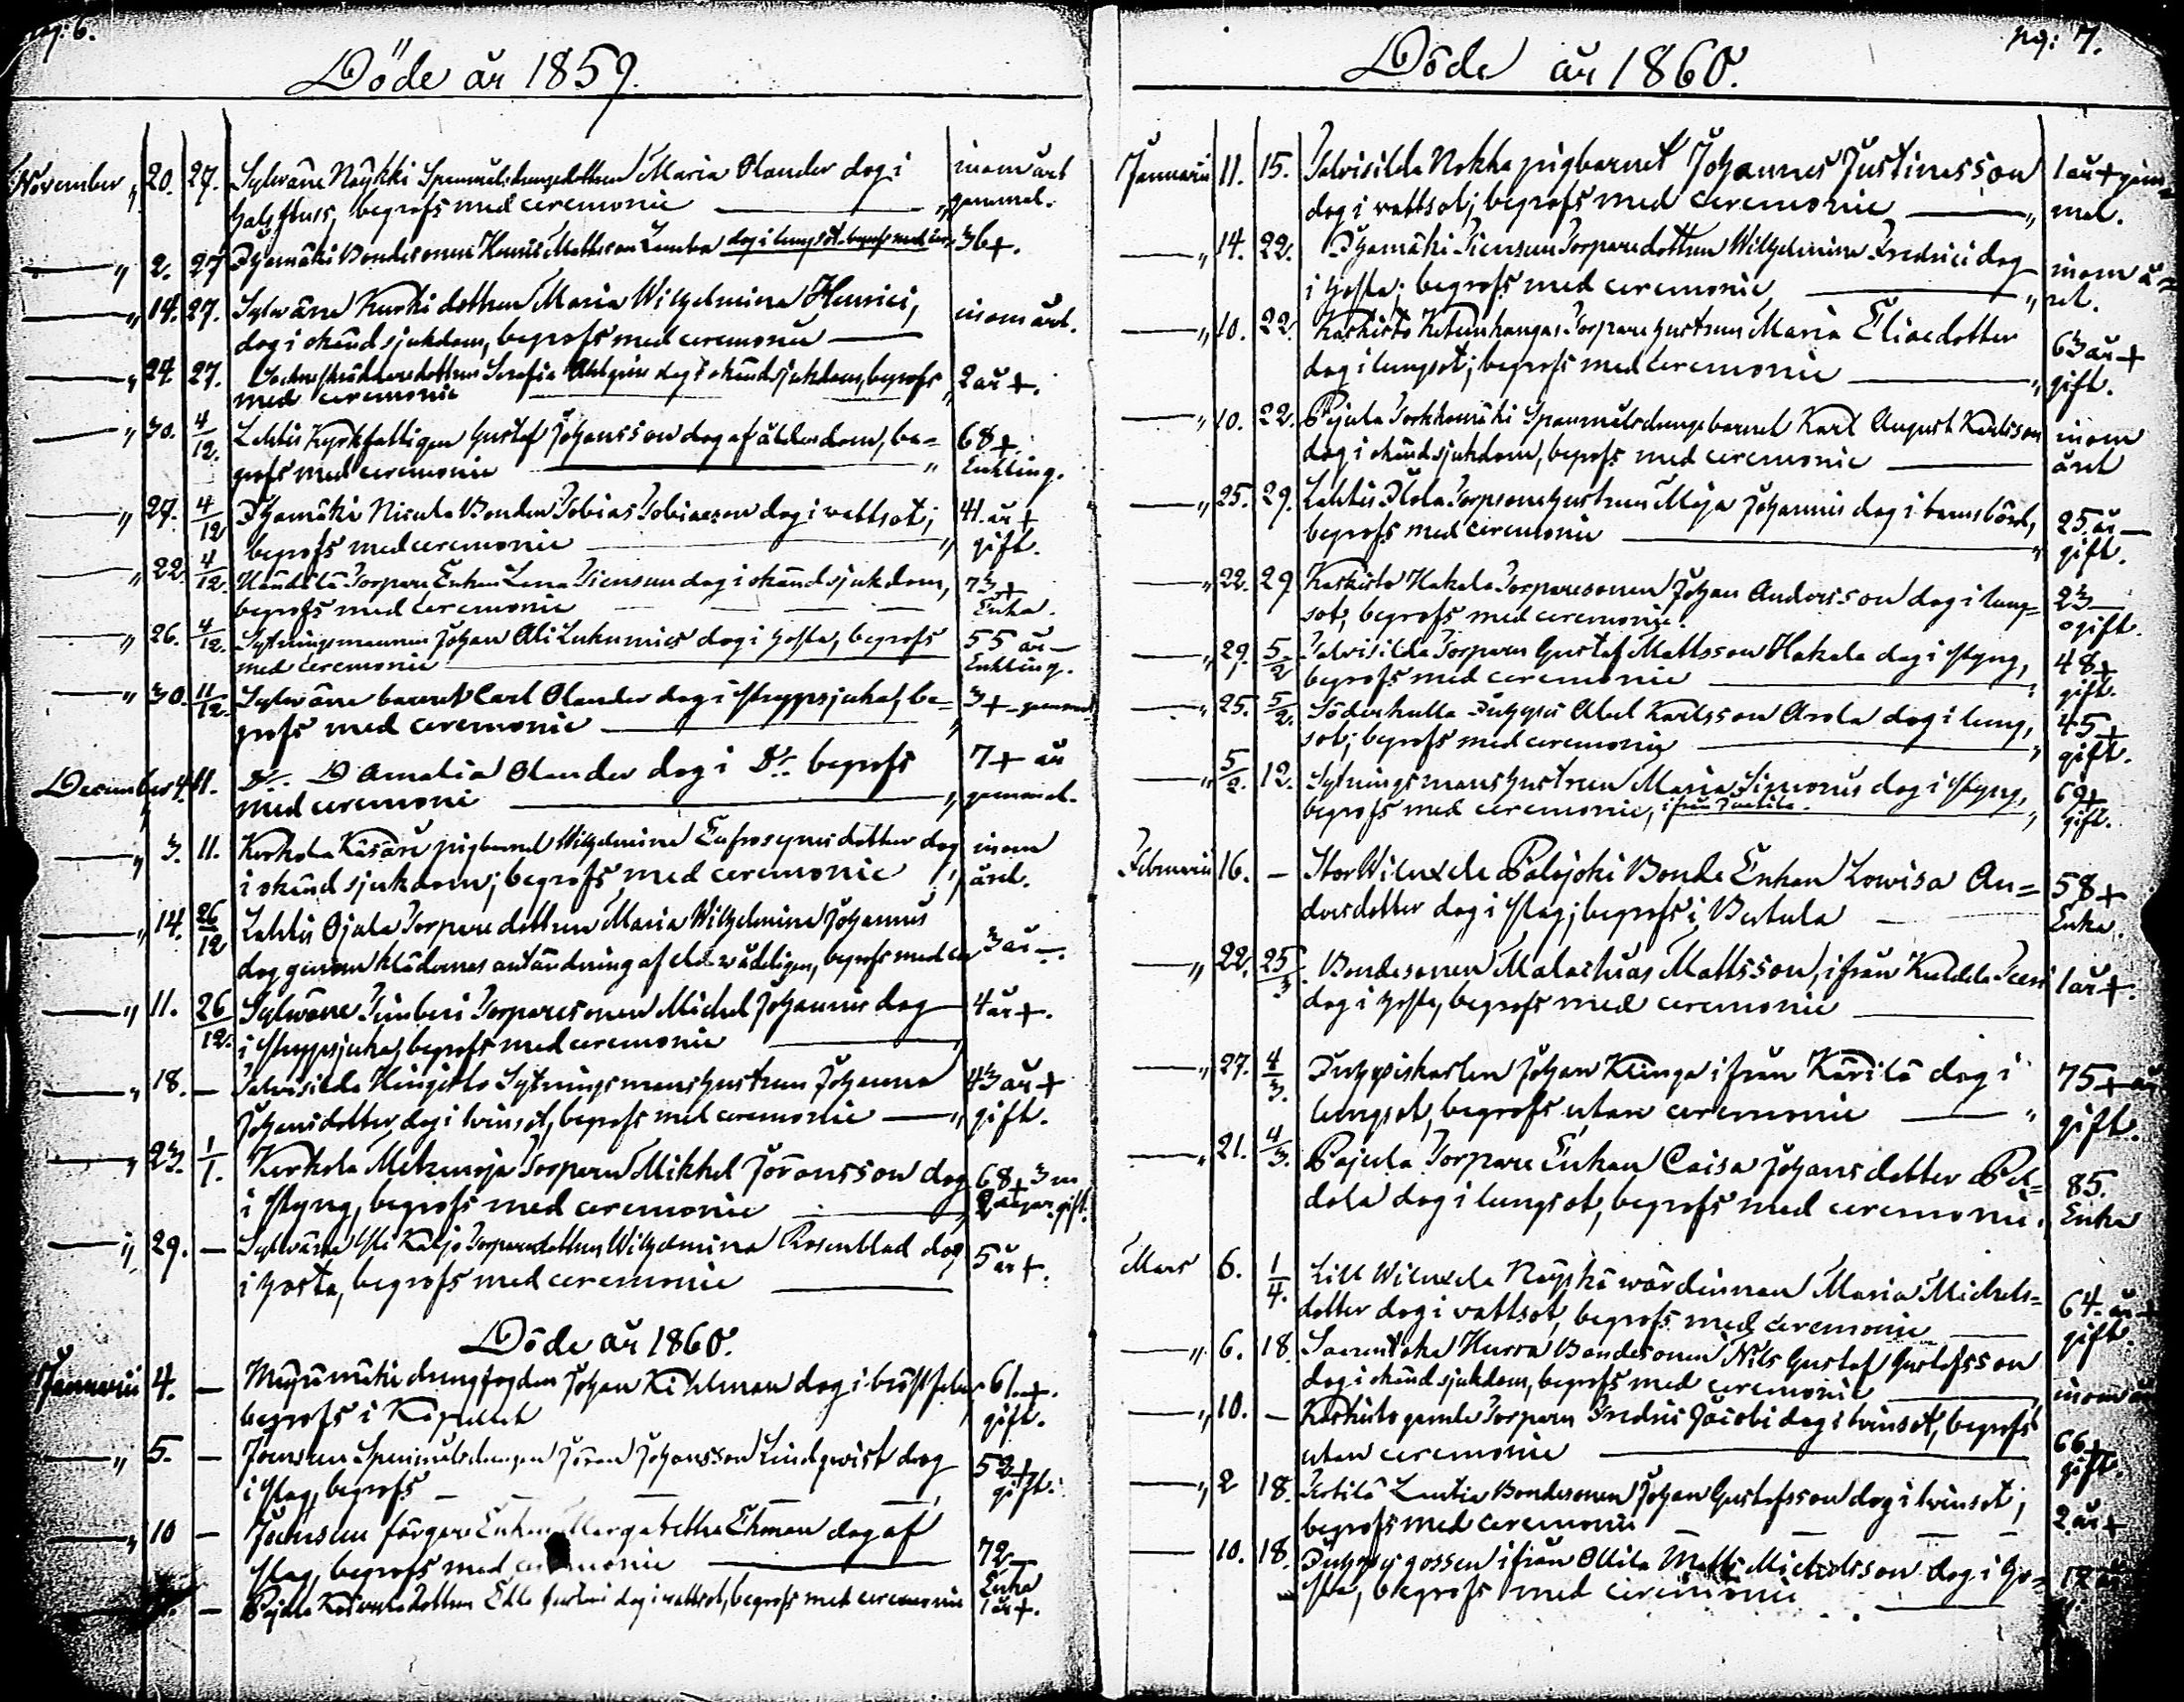 pag. 6.
Döde år 1859.
November " 20. 27. Sylvänä Näykki Spannmålsdrängedottren Maria Olander dog i inom året
halsfluss, begrofs med ceremonie " gammal.
" 2. 27 Ihamäki Bondesonen Henric Mattsson dog i lungsot begrofs med 36+.
" 14. 27. Sylvänä Kurki dottren Maria Wilhelmina Henrici, inom året.
dog i okänd sjukdom, begrofs med ceremonie
" 24. 27. Sockneskräddaredottren Serafia Ahlgrén dog i okänd sjukdom, begrofs 2 år +.
med ceremonie
" 30. 4/12. Lahtis Kyrkfattigen Gustaf Johansson dog af ålderdom, be= 68+
grofs med ceremonie " Enkling.
" 29. 4/12 Ihamäki Niemelä Bonden Tobias Tobiasson dog i vattsot; 41. år +
begrofs med ceremonie " gift.
" 22. 4/12. Torpare Enkan Lena dog i okänd sjukdom, 73+
begrofs med ceremonie Enka.
" 26. 4/12. Sytningsmannen Johan dog i hosta, begrofs 55 år —
med ceremonie Enkling.
" 30. 11/12. Sylvänä barnet Carl Olander dog i strypsjuka, be= 3+ gammal
grofs med ceremonie "
December 4. 11. D:o D:o Amalia Olander dog i D:o begrofs 7+ år
med ceremoni " gammal.
" 3. 11. Kerkola pigbarnet Wilhelmina Eufrosynedotter dog inom
i okänd sjukdom; begrofs med ceremonie " året.
" 14. 26/12 Lahtis Ojala Torparedottren Maria Wilhelmina Johannis 3 år —.
dog genom klädernas antändning af eld wådeligen, begrofs med cer
" 11. 26/12. Sylvänä Torparesonen Michel Johannis dog 4 år +.
i strypsjuka, begrofs med ceremonie
" 18. — Talvisilda Hingisto Sytningsmanshustrun Johanna 43 år +
Johansdotter, dog i tvinsot, begrofs med ceremonie " gift.
" 23. 1/1. Kerkola Metzenoja Torparen Mikkel Jöransson dog 68+ 3 m
i styng, begrofs med ceremonie 2 dagar. gift.
" 29. — Sylvänä Yli Torparedottren Wilhelmina Rosenblad dog 5 år +.
i hosta, begrofs med ceremonie
Döde år 1860.
Januarii 4. — drängfogden Johan Kihlman dog i bröstfeber 61.+.
begrofs i Kapellet gift.
" 5. — Joensuu Spannmålsdrängen Jöran Johansson Lindqvist dog 52+
i slag, begrofs gift.
" 10 — Joensuu färgare Enkan Margaretha Ekman dog af 72—
slag, begrofs med ceremonie Enka
— Pajula dottren Edla dog i vattsot, begrofs med ceremonie 1 år +.
pag: 7.
Döde år 1860.
Januarii 11. 15. Talvisilda Nokka pigbarnet Johannes Justinesson 1 år + gam=
dog i vattsot; begrofs med ceremonie " mal.
" 14. 22. Ihamäki Torparedottren Wilhelmina Fredrici dog inom å=
i hosta; begrofs med ceremonie " ret.
" 10. 22. Kaskisto Ketunhangas Torparehustrun Maria Eliaedotter 63 år +
dog i lungsot; begrofs med ceremonie " gift.
" 10. 22. Pajula Torkkomäki Spannmålsdrängebarnet Karl August Karlsson inom
dog i okänd sjukdom, begrofs med ceremonie året
" 25. 29. Lahtis Torparehustrun Maja Johannis dog i barnsbörd, 25 år —
begrofs med ceremonie " gift.
" 22. 29 Kaskisto Hakala Torparesonen Johan Andersson dog i lung= 23—
sot, begrofs med ceremonie. ogift.
" 29. 5/2 Talvisilda Torparen Gustaf Mattsson Hakala dog i styng, 48+
begrofs med ceremonie gift.
" 25. 5/2. Söderkulla Inhyses Abel Karlsson Arola dog i lung, 45+
sot; begrofs med ceremonie " gift.
" 5/2. 12. Sytningsmanshustrun Maria Simonis dog i styng, 69+
begrofs med ceremonie, ifrån gift.
Februarii 16. — Stor Wiluxela Palojoki Bonde Enkan Lowisa An= 58+
dersdotter dog i slag; begrofs i Vertula Enka.
" 22. 25/3. Bondesonen Malachias Mattsson, ifrån 1 år +.
dog i hosta, begrofs med ceremonie
" 27. 4/3. Inhysiskarlen Johan Klinga ifrån Kärilä dog i 75+ år
lungsot, begrofs utan ceremonie " gift.
" 21. 4/3. Pajula Torpare Enkan Caisa Johansdotter Pel= 85.
dola dog i lungsot, begrofs med ceremonie. Enka
Mars 6. 1/4. Lill Wiluxela Näyki wärdinnan Maria Michels= 64. år +
dotter dog i vattsot, begrofs med ceremonie gift.
" 6. 18. Saarentaka Hurra Bondesonen Nils Gustaf Gustafsson inom år
dog i okänd sjukdom, begrofs med ceremonie
" 10. — Kaskisto gamle Torparen Fredric Jacobi dog i tvinsot, begrofs 66+
utan ceremonie gift.
" 2 18. Bondesonen Johan Gustafsson dog i tvinsot; 2 år +
begrofs med ceremonie
10. 18. Inhyses gossen ifrån Ollila Matts Michelsson dog i ho= 12 år
sta, begrofs med ceremonie